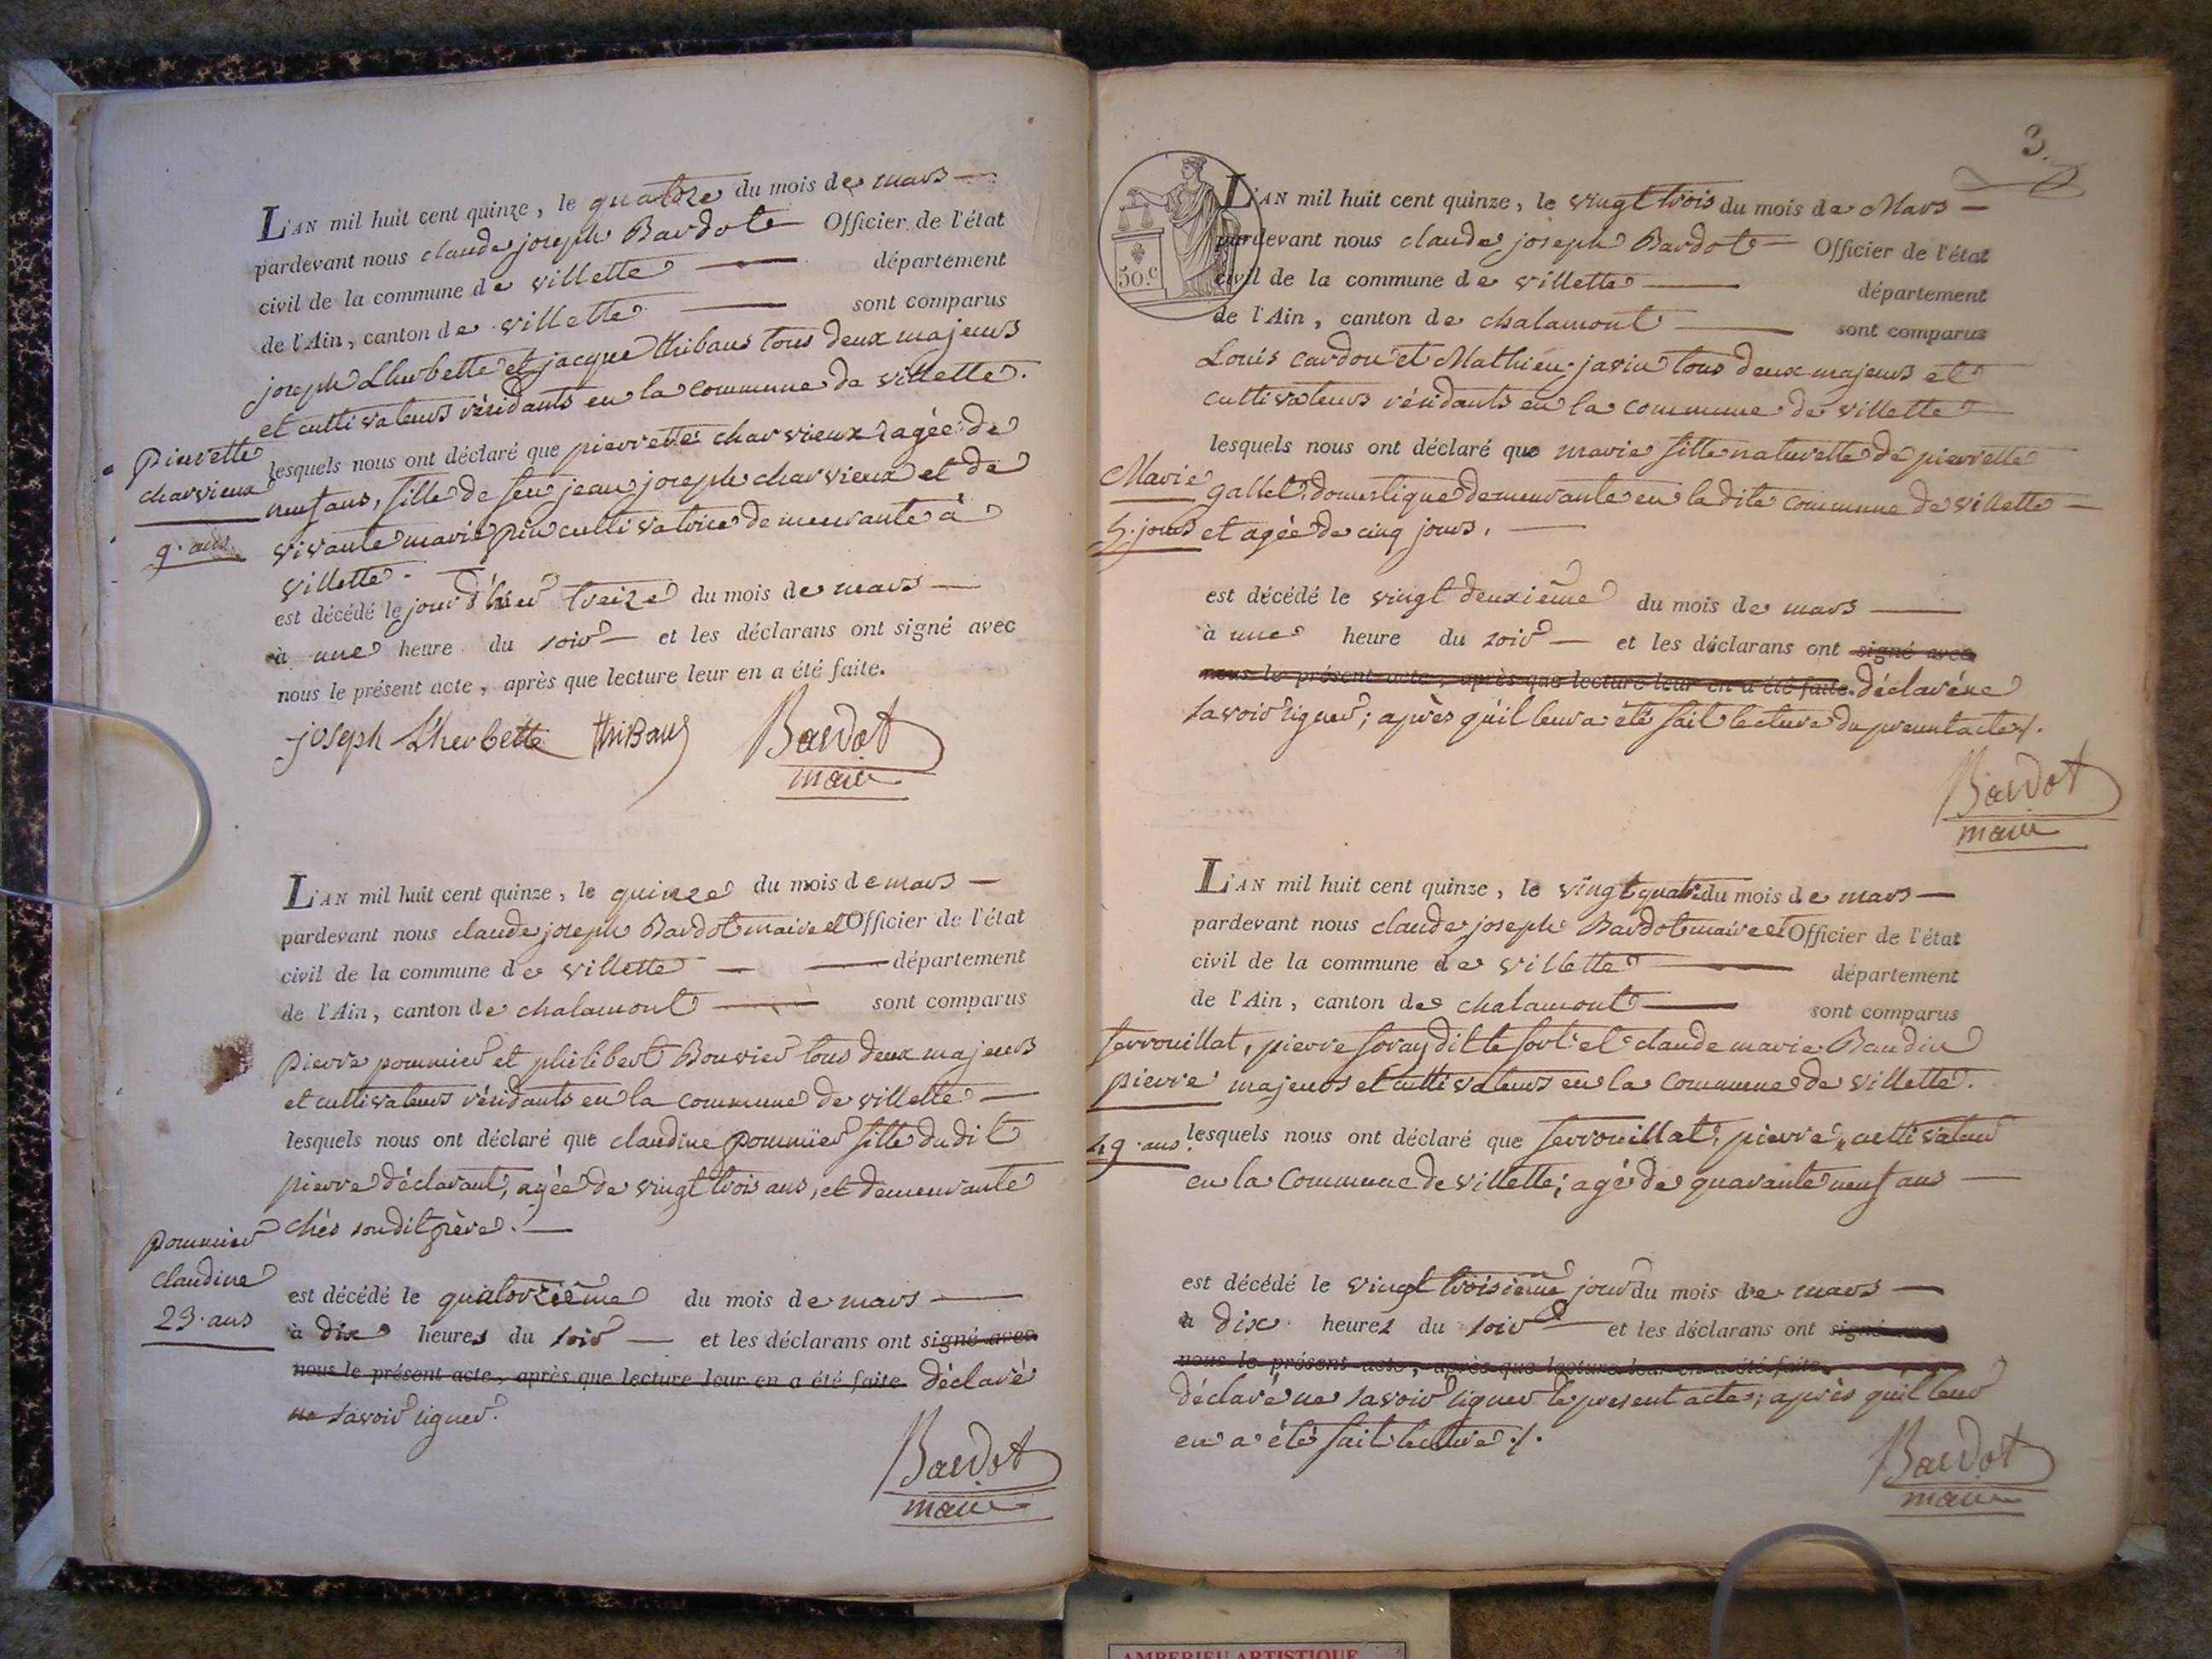 L'AN mil huit cent quinze, le quatorze du mois de mars
pardevant nous claude joseph Bardot Officier de l'état
civil de la commune de villette département
de l'Ain, canton de villette sont comparus
joseph Lherbette et jacque thibaus tous deux majeurs
et cultivateurs résidants en la commune de villette.
Pierrette
charvieux
9. ans
lesquels nous ont déclaré que pierrette charvieux agée de
neuf ans, fille de feu jean joseph charvieux et de
vivante marie pin cultivatrice demeurante à
villette.
est décédé le jour d'hier treize du mois de mars
à une heure du soir et les déclarans ont signé avec
nous le présent acte, après que lecture leur en a été faite.
joseph L'herbette thiBaus Bardot
maire
L'AN mil huit cent quinze, le quinze du mois de mars
pardevant nous claude joseph Bardot maire et Officier de l'état
civil de la commune de villette département
de l'Ain, canton de chalamont sont comparus
pierre pommier et philibert Bouvier tous deux majeurs
et cultivateurs résidants en la commune de villette
lesquels nous ont déclaré que claudine pommier fille du dit
pierre déclarant, agée de vingt trois ans, et demeurante
chés son dit père.
pommier
claudine
23. ans
est décédé le quatorzième du mois de mars
à dix heures du soir et les déclarans ont signé avec
nous le présent acte, après que lecture leur en a été faite déclaré
ne savoir signer.
Bardot
maire
3.
50.c
L'AN mil huit cent quinze, le vingt trois du mois de Mars
pardevant nous claude joseph Bardot Officier de l'état
civil de la commune de villette département
de l'Ain, canton de chalamont sont comparus
Louis cardon et Mathieu javin tous deux majeurs et
cultivateurs résidants en la commune de villette
lesquels nous ont déclaré que marie fille naturelle de pierrette
Marie
5. jours
gallet, domestique demeurante en la dite commune de villette
et agée de cinq jours.
est décédé le vingt deuxième du mois de mars
à une heure du soir et les déclarans ont signé avec
nous le présent acte, après que lecture leur en a été faite. déclaré ne
savoir signer; après qu'il leur a été fait lecture du present acte./.
Bardot
maire
L'AN mil huit cent quinze, le vingt quatre du mois de mars
pardevant nous claude joseph Bardot maire et Officier de l'état
civil de la commune de villette département
de l'Ain, canton de chalamont sont comparus
ferrouillat,
pierre
49. ans.
pierre foray dit le fort et claude marie Baudin
majeurs et cultivateurs en la commune de villette.
lesquels nous ont déclaré que ferrouillat, pierre, cultivateur
en la commune de villette; agé de quarante neuf ans
est décédé le vingt troisième jour du mois de mars
à dix heures du soir et les déclarans ont signé avec
nous le présent acte, après que lecture leur en a été faite,
déclaré ne savoir signer le present acte; après qu'il leur
en a été fait lecture./.
Bardot
maire
AMBERIEU ARTISTIQUE